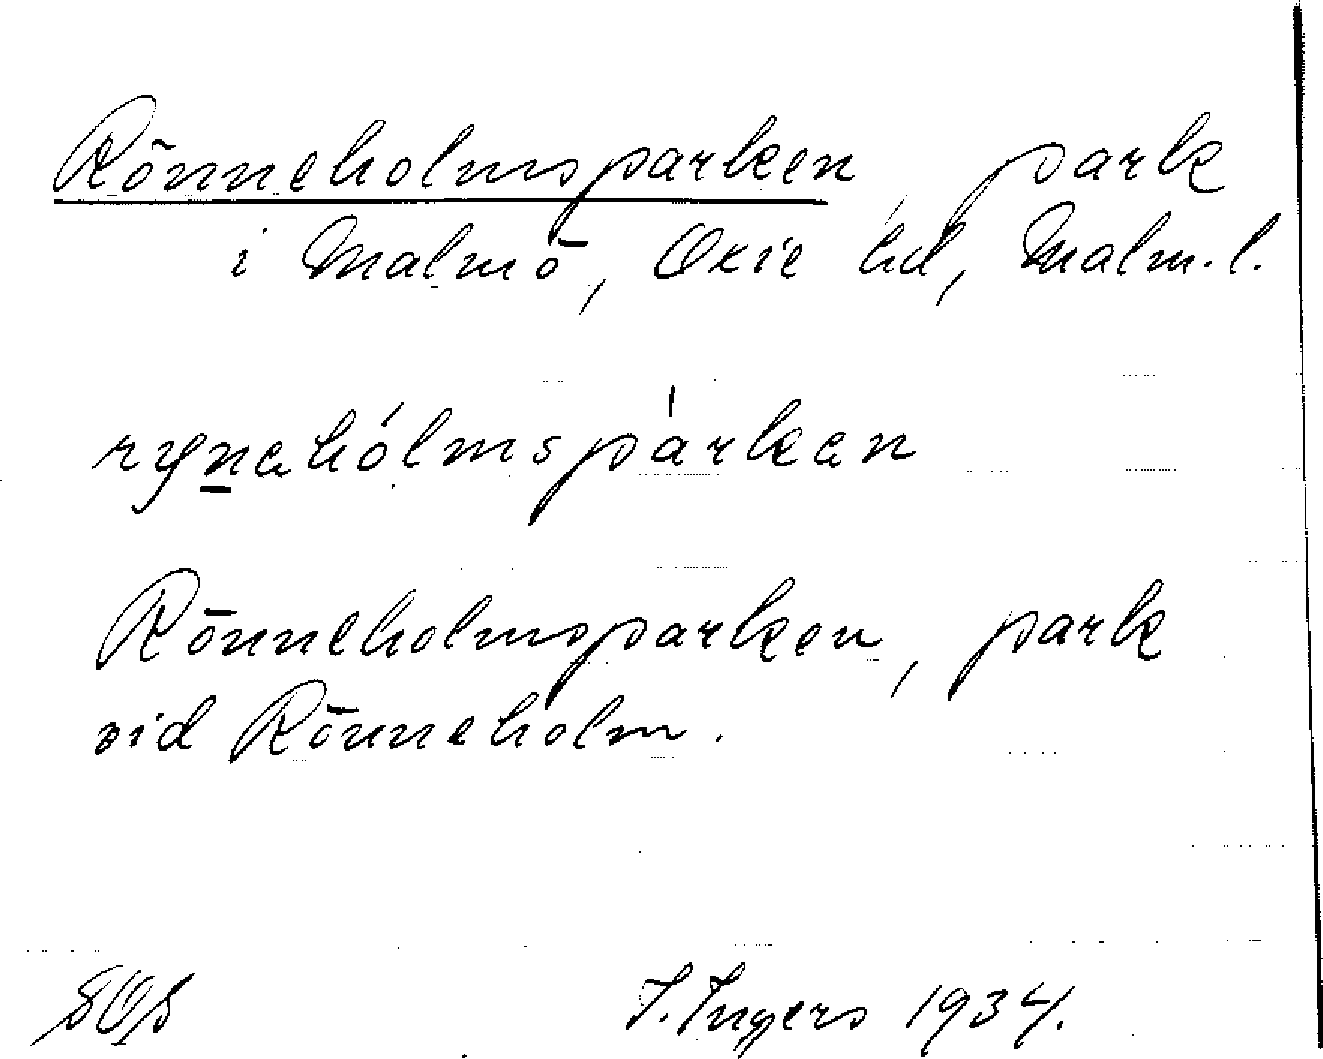 Rönneholmsparken park
i Malmö, Oxie hd, Malm. l.
rynəhólmspárkən
Rönneholmsparken, park
vid Rönneholm.
I. Ingers 1934.